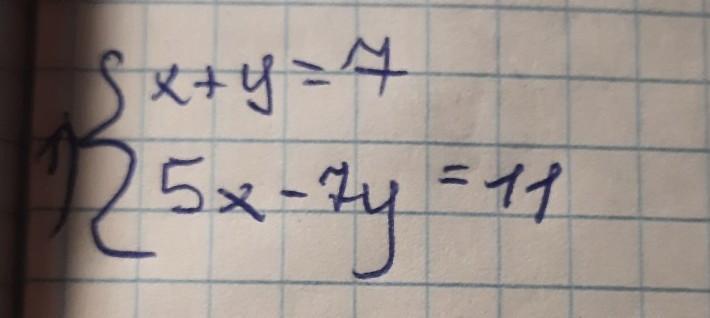 1) { x + y = 7
5x - 7y = 11